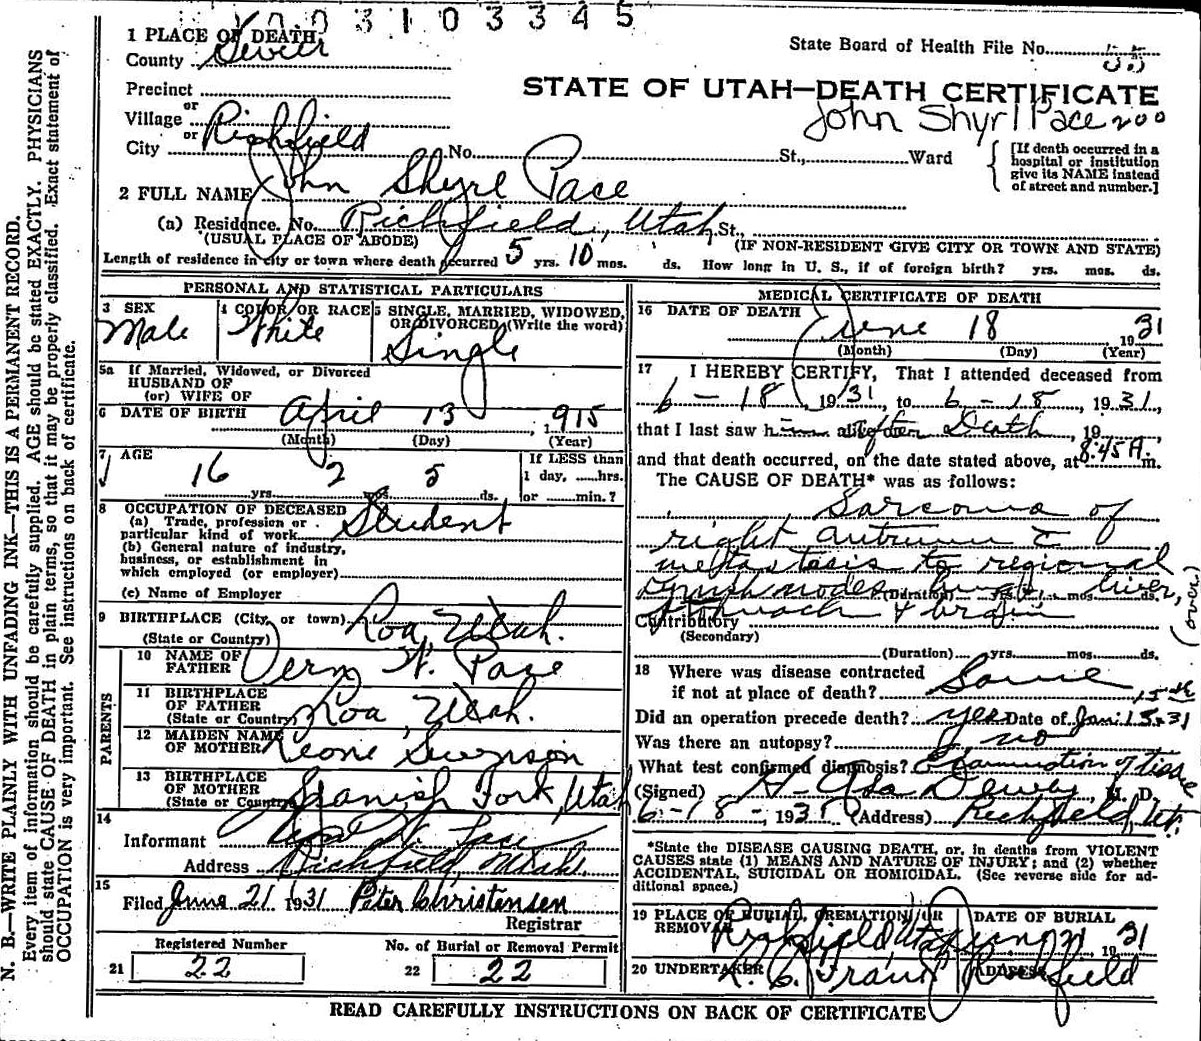 0 0 3 1 0 3 3 4 5
1 PLACE OF DEATH
County Sevier
State Board of Health File No. 55
Precinct
or
STATE OF UTAH—DEATH CERTIFICATE
Village
or
John Shyrl Pace 200
City Richfield No. St., Ward
[If death occurred in a hospital or institution give its NAME instead of street and number.]
2 FULL NAME John Shyrl Pace
(a) Residence. No. Richfield, Utah St.,
(USUAL PLACE OF ABODE) (IF NON-RESIDENT GIVE CITY OR TOWN AND STATE)
Length of residence in city or town where death occurred 5 yrs. 10 mos. ds. How long in U. S., if of foreign birth? yrs. mos. ds.
PERSONAL AND STATISTICAL PARTICULARS
3 SEX Male
4 COLOR OR RACE White
5 SINGLE, MARRIED, WIDOWED, OR DIVORCED (Write the word) Single
5a If Married, Widowed, or Divorced
HUSBAND OF
(or) WIFE OF
6 DATE OF BIRTH April 13, 1915
(Month) (Day) (Year)
7 AGE 16 yrs. 2 mos. 5 ds.
If LESS than 1 day, hrs. or min.?
8 OCCUPATION OF DECEASED
(a) Trade, profession or particular kind of work Student
(b) General nature of industry, business, or establishment in which employed (or employer)
(c) Name of Employer
9 BIRTHPLACE (City, or town) Loa, Utah.
(State or Country)
PARENTS
10 NAME OF FATHER Vern W. Pace
11 BIRTHPLACE OF FATHER (State or Country) Loa, Utah.
12 MAIDEN NAME OF MOTHER Leone Swenson
13 BIRTHPLACE OF MOTHER (State or Country) Spanish Fork, Utah
14
Informant W. Pace
Address Richfield, Utah.
15
Filed June 21 1931 Peter Christensen
Registrar
Registered Number
21 22
No. of Burial or Removal Permit
22 22
MEDICAL CERTIFICATE OF DEATH
16 DATE OF DEATH June 18 1931
(Month) (Day) (Year)
17 I HEREBY CERTIFY, That I attended deceased from
6-18, 1931, to 6-18, 1931,
that I last saw him alive after Death, 19
and that death occurred, on the date stated above, at 8:45 A. m.
The CAUSE OF DEATH* was as follows:
Sarcoma of
right antrum c̄
metastasis to regional
lymph nodes, lungs, liver,
(Duration) yrs. mos. ds.
stomach & brain
(over)
Contributory
(Secondary)
(Duration) yrs. mos. ds.
18 Where was disease contracted
if not at place of death? Same
Did an operation precede death? yes Date of Jan. 15th 31
Was there an autopsy? no
What test confirmed diagnosis? Examination of tissue
(Signed) H. Asa Dewey, M. D.
6-18-, 1931 (Address) Richfield, Ut.
*State the DISEASE CAUSING DEATH, or, in deaths from VIOLENT
CAUSES state (1) MEANS AND NATURE OF INJURY; and (2) whether
ACCIDENTAL, SUICIDAL OR HOMICIDAL. (See reverse side for ad-
ditional space.)
19 PLACE OF BURIAL, CREMATION, OR REMOVAL Richfield, Utah
DATE OF BURIAL June 21 1931
20 UNDERTAKER
ADDRESS Richfield
READ CAREFULLY INSTRUCTIONS ON BACK OF CERTIFICATE
N. B.—WRITE PLAINLY WITH UNFADING INK—THIS IS A PERMANENT RECORD.
Every item of information should be carefully supplied. AGE should be stated EXACTLY. PHYSICIANS
should state CAUSE OF DEATH in plain terms, so that it may be properly classified. Exact statement of
OCCUPATION is very important. See instructions on back of certificate.